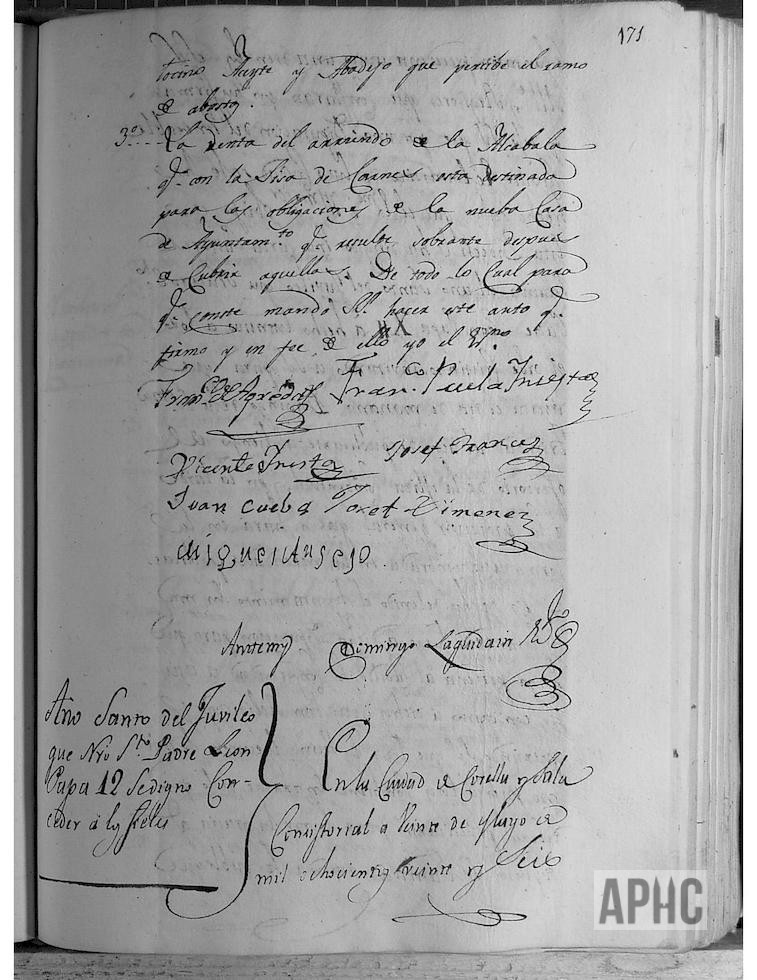 171
tocino Aceyte y Abadejo que percibe el ramo
de abastos.
3º.... La renta del arriendo de la Alcabala
q.e con la Sisa de Carnes esta destinada
para las obligaciones de la nueba Casa
de Ayuntam.to q.e resulte sobrante despues
de Cubrir aquellas. De todo lo Cual para
q.e conste mando SS. hacer este auto q.e
firmo y en fee de ello yo el Ss.no
Fran.co de Agreda Fran.co Puelaynsesta
Vicente Josef Frances
Juan cueba Josef Ximenez
Miguel Ausejo.
Antemy Domingo Laquidain
Año Santo del Juvileo
que Nro S.to Padre Leon
Papa 12 Sedigno Con-
ceder á los fieles
En la Ciudad de Corella y Sala
Consistorial a Veinte de Mayo de
mil ochocientos veinte y Seis
APHC